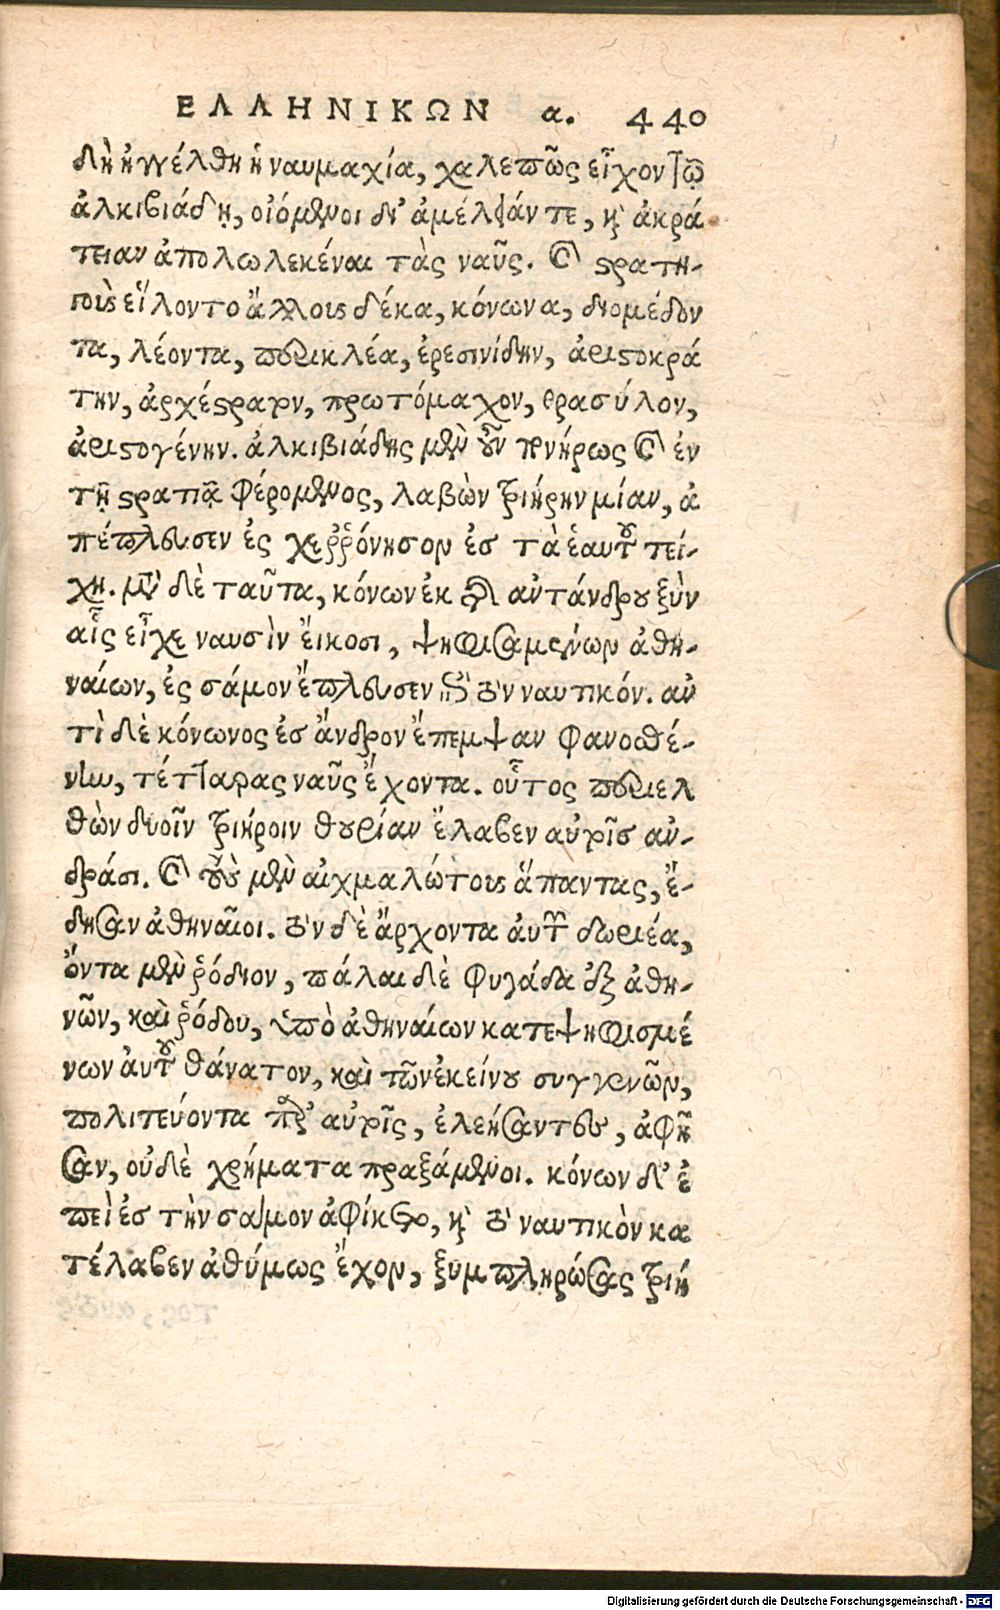 ΕΛΛΗΝΙΚΩΝ α. 440
δὴ ἠγγέλθη ἡ ναυμαχία, χαλεπῶς εἶχον τῷ
ἀλκιβιάδῃ, οἰόμενοι δι' ἀμέλειάν τε, καὶ ἀκρά
τειαν ἀπολωλεκέναι τὰς ναῦς. καὶ στρατη-
γοὺς εἵλοντο ἄλλους δέκα, κόνωνα, διομέδον
τα, λέοντα, περικλέα, ἐρεσινίδην, ἀριστοκρά
την, ἀρχέστρατον, πρωτόμαχον, θρασύλον,
ἀριστογένην. ἀλκιβιάδης μὲν οὖν πονήρως καὶ ἐν
τῇ στρατιᾷ φέρομενος, λαβὼν τριήρην μίαν, ἀ
πέπλευσεν ἐς χερῤῥόνησον ἐσ τὰ ἑαυτοῦ τεί-
χη. μετὰ δὲ ταῦτα, κόνων ἐκ τῆς αὐτάνδρου ξὺν
αἷς εἶχε ναυσὶν ἔικοσι, ψηφισαμένων ἀθη-
ναίων, ἐς σάμον ἔπλευσεν ἐπὶ τὸ ναυτικόν. ἀν
τὶ δὲ κόνωνος ἐσ ἄνδρον ἔπεμψαν φανοσθέ-
νην, τέτταρας ναῦς ἔχοντα. οὗτος περιελ
θὼν δυοῖν τριήροιν θουρίαν ἔλαβεν αὐτοῖς ἀν-
δράσι. καὶ τοὺς μὲν αἰχμαλώτους ἅπαντας, ἔ-
δησαν ἀθηναῖοι. τὸν δὲ ἄρχοντα ἀυτῶν δωριέα,
ὄντα μὲν ῥόδιον, πάλαι δὲ φυγάδα ἐξ ἀθη-
νῶν, καὶ ῥόδου, ὑπὸ ἀθηναίων κατεψηφισμέ
νων ἀυτοῦ θάνατον, καὶ τῶν ἐκείνου συγγενῶν,
πολιτεύοντα παρ' αὐτοῖς, ἐλεήσαντες, ἀφῆ
σαν, οὐδὲ χρήματα πραξάμενοι. κόνων δ' ἐ
πεὶ ἐσ τὴν σάμον ἀφίκετο, καὶ τὸ ναυτικὸν κα
τέλαβεν ἀθύμως ἔχον, ξυμπληρώσας τριή
Digitalisierung gefördert durch die Deutsche Forschungsgemeinschaft - DFG